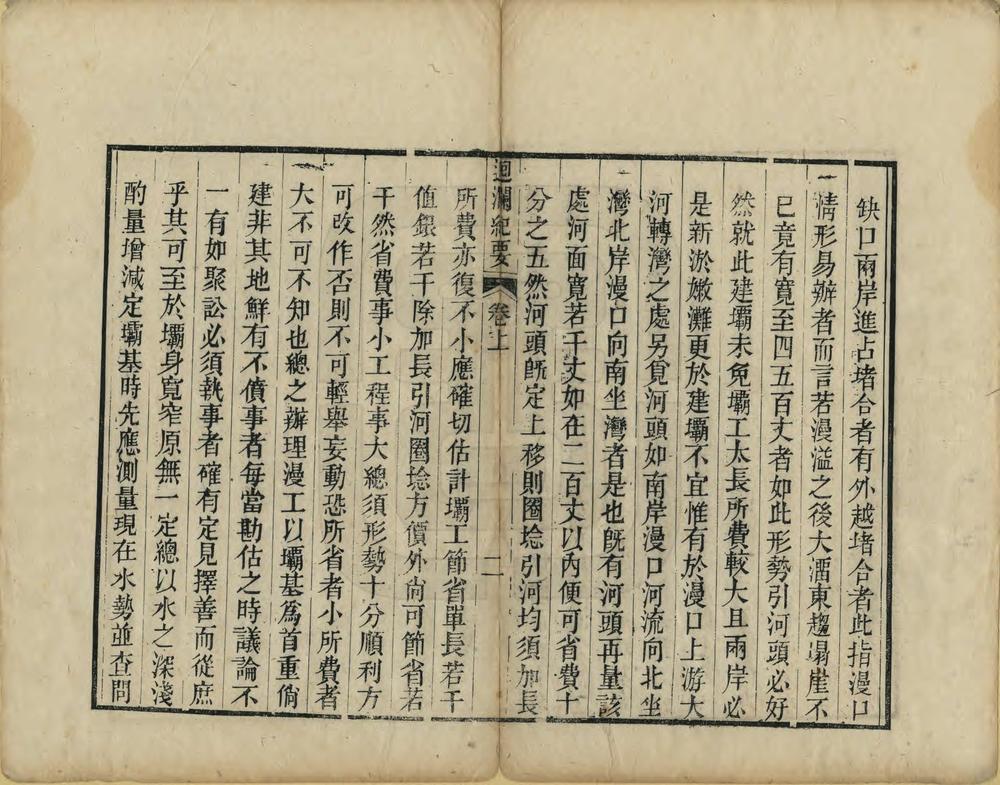 缺口兩岸進占堵合者有外越堵合者此指漫口
情形易辦者而言若漫溢之後大溜東趨塌崖不
已竟有寬至四五百丈者如此形勢引河頭必好
然就此建壩未免壩工太長所費較大且兩岸必
是新淤嫩灘更於建壩不宜惟有於漫口上游大
河轉灣之處另覓河頭如南岸漫口河流向北坐
灣北岸漫口向南坐灣者是也旣有河頭再量該
處河面寬若干丈如在二百丈以內便可省費十
分之五然河頭旣定上移則圈埝引河均須加長
迴瀾紀要
卷上
二
所費亦復不小應確切估計壩工節省單長若干
値銀若干除加長引河圈埝方價外尙可節省若
干然省費事小工程事大總須形勢十分順利方
可改作否則不可輕舉妄動恐所省者小所費者
大不可不知也總之辦理漫工以壩基爲首重倘
建非其地鮮有不僨事者每當勘估之時議論不
一有如聚訟必須執事者確有定見擇善而從庶
乎其可至於壩身寬窄原無一定總以水之深淺
酌量增減定壩基時先應測量現在水勢並查問